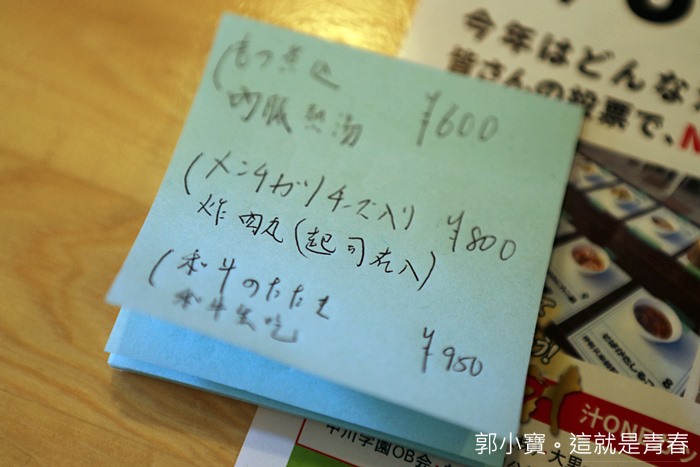 もつ煮込
内服熱湯 ¥600
(メンチカツ チーズ入り
炸肉丸(起司在入) ¥800
(和牛のたたき
和牛生吃 ¥950
今年はどんな
皆さんの投票で、N
汁ONE
中川学園OB会
大里
郭小寶。這就是青春